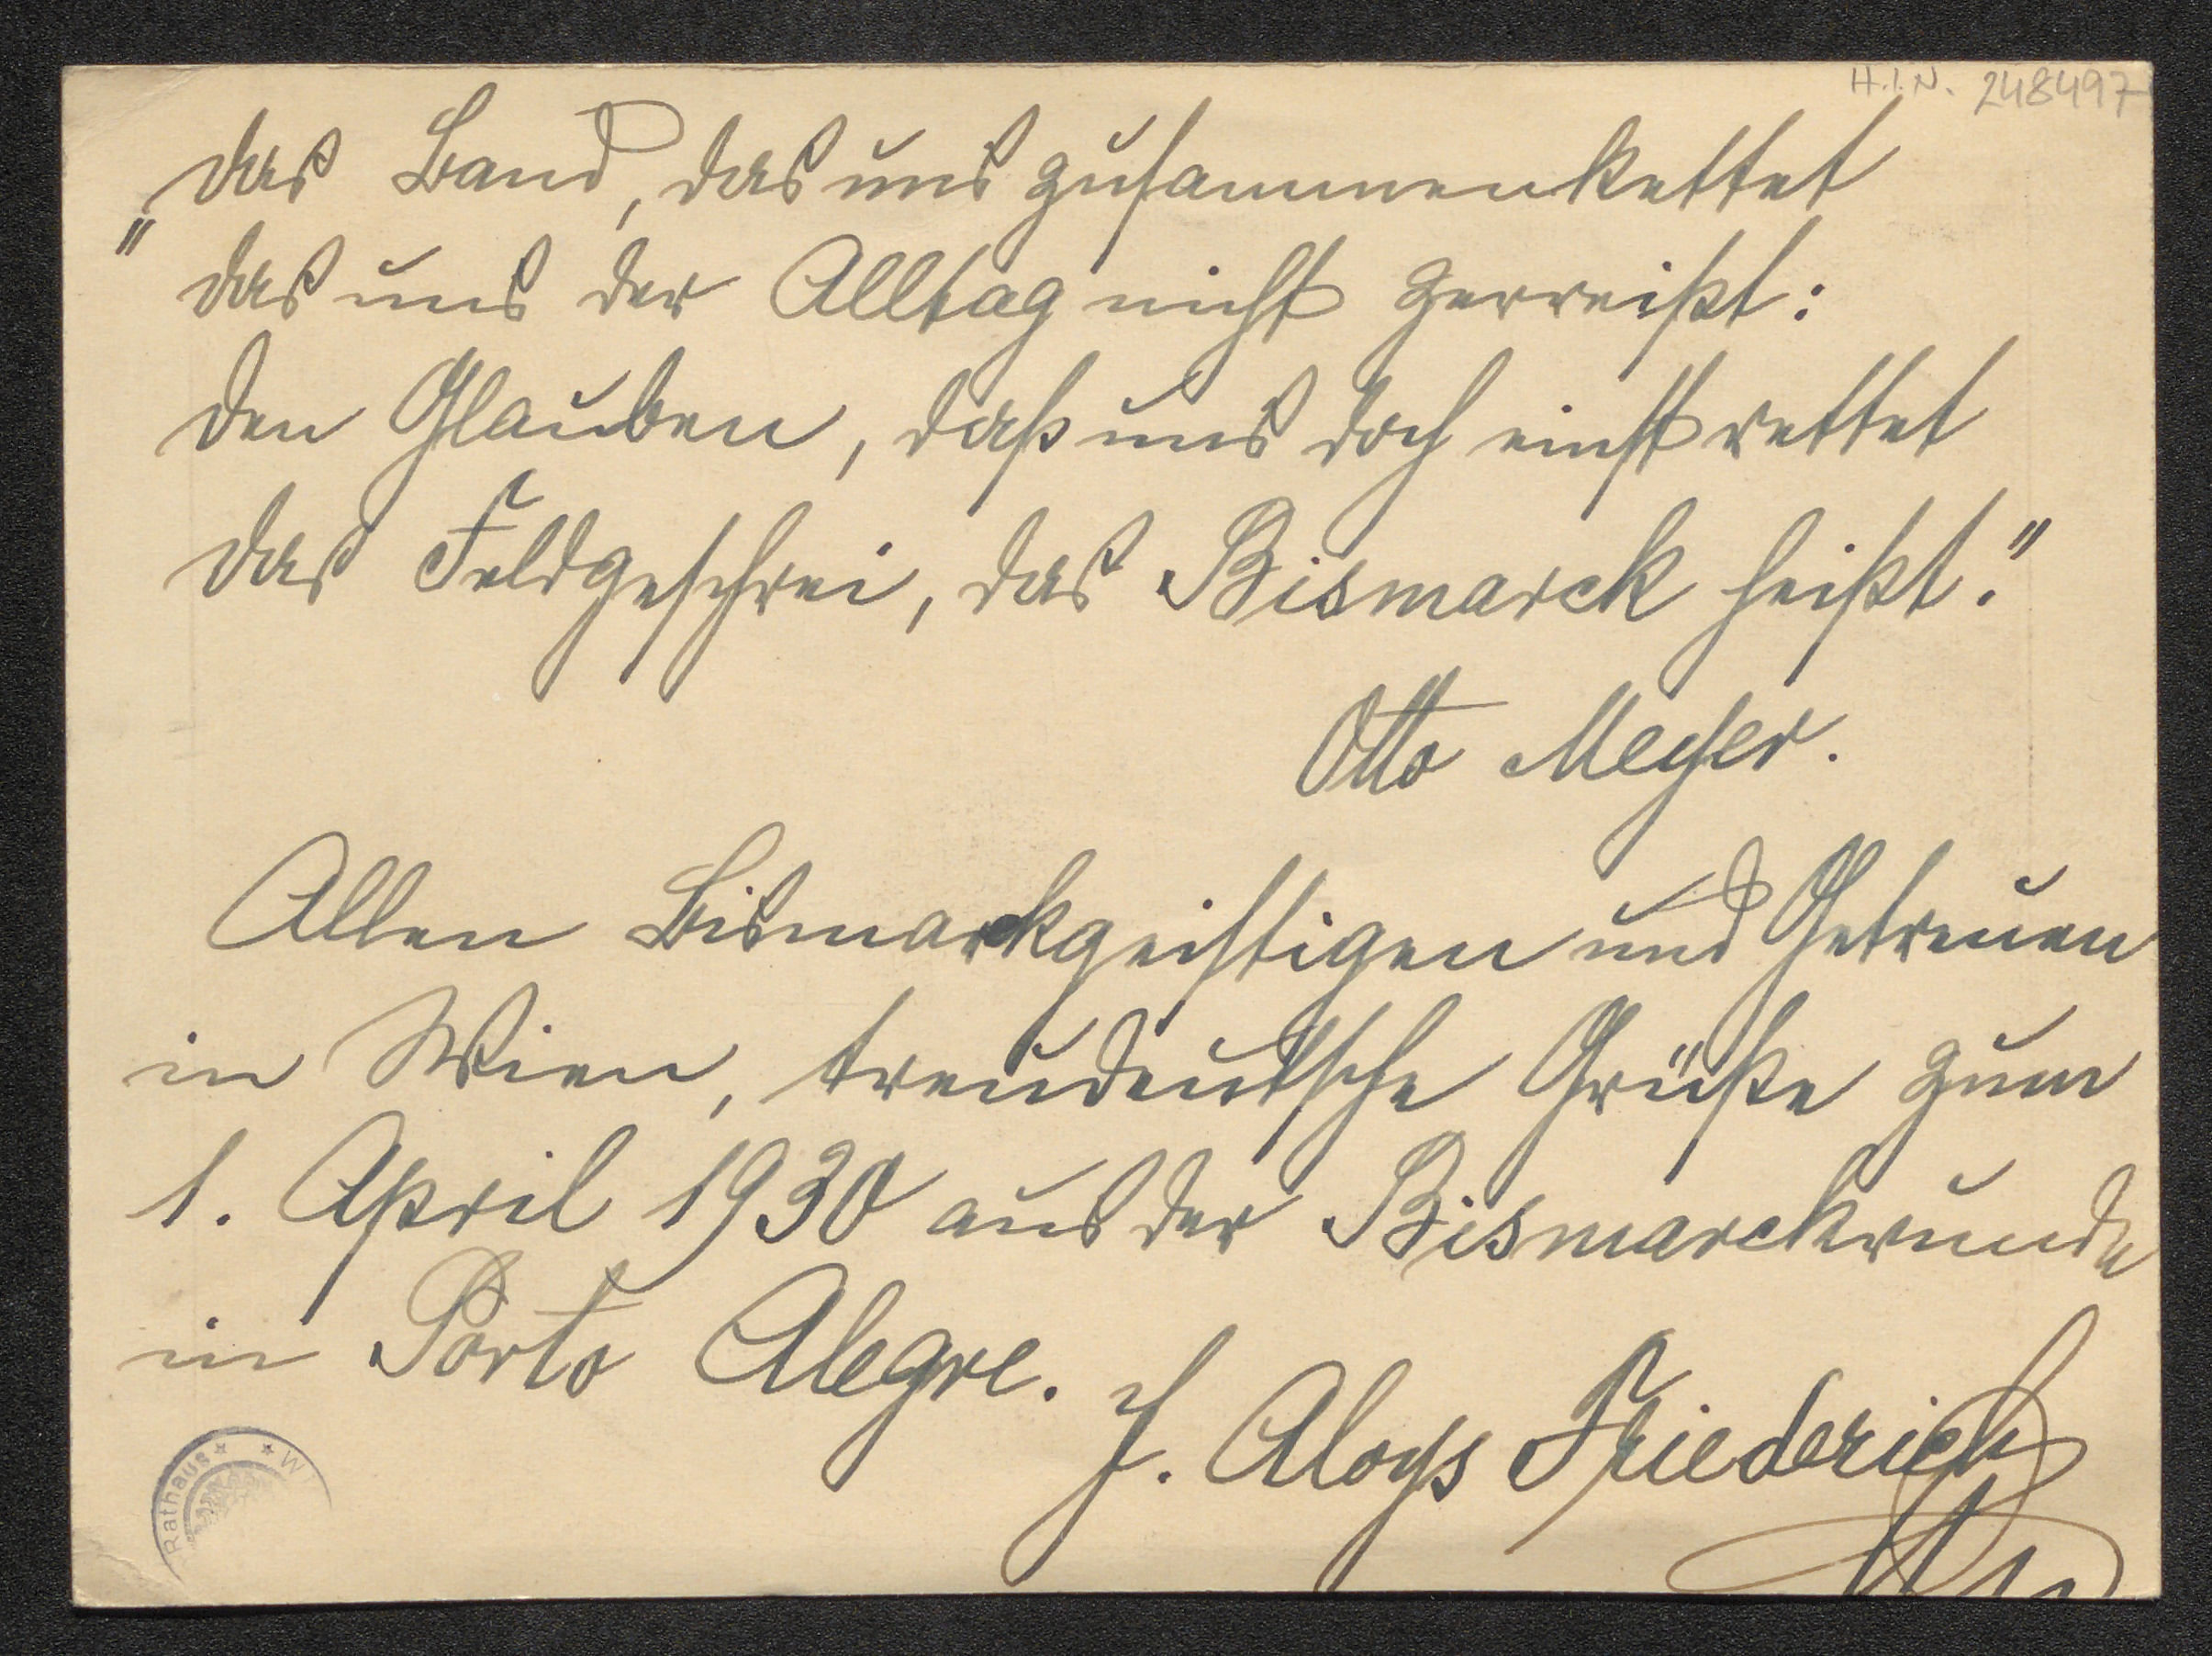 H.I.N. 248497
„das Band, das uns zusammenkettet
das uns der Alltag nicht zerreißt:
den Glauben, daß uns doch einst rettet
das Feldgeschrei, das Bismarck heißt."
Otto Meyer.
Allen Bismarckgeistigen und Getreuen
in Wien, treudeutsche Grüße zum
1. April 1930 aus der Bismarckrunde
in Porto Alegre.
J. Aloys Friederich
Rathaus * * W